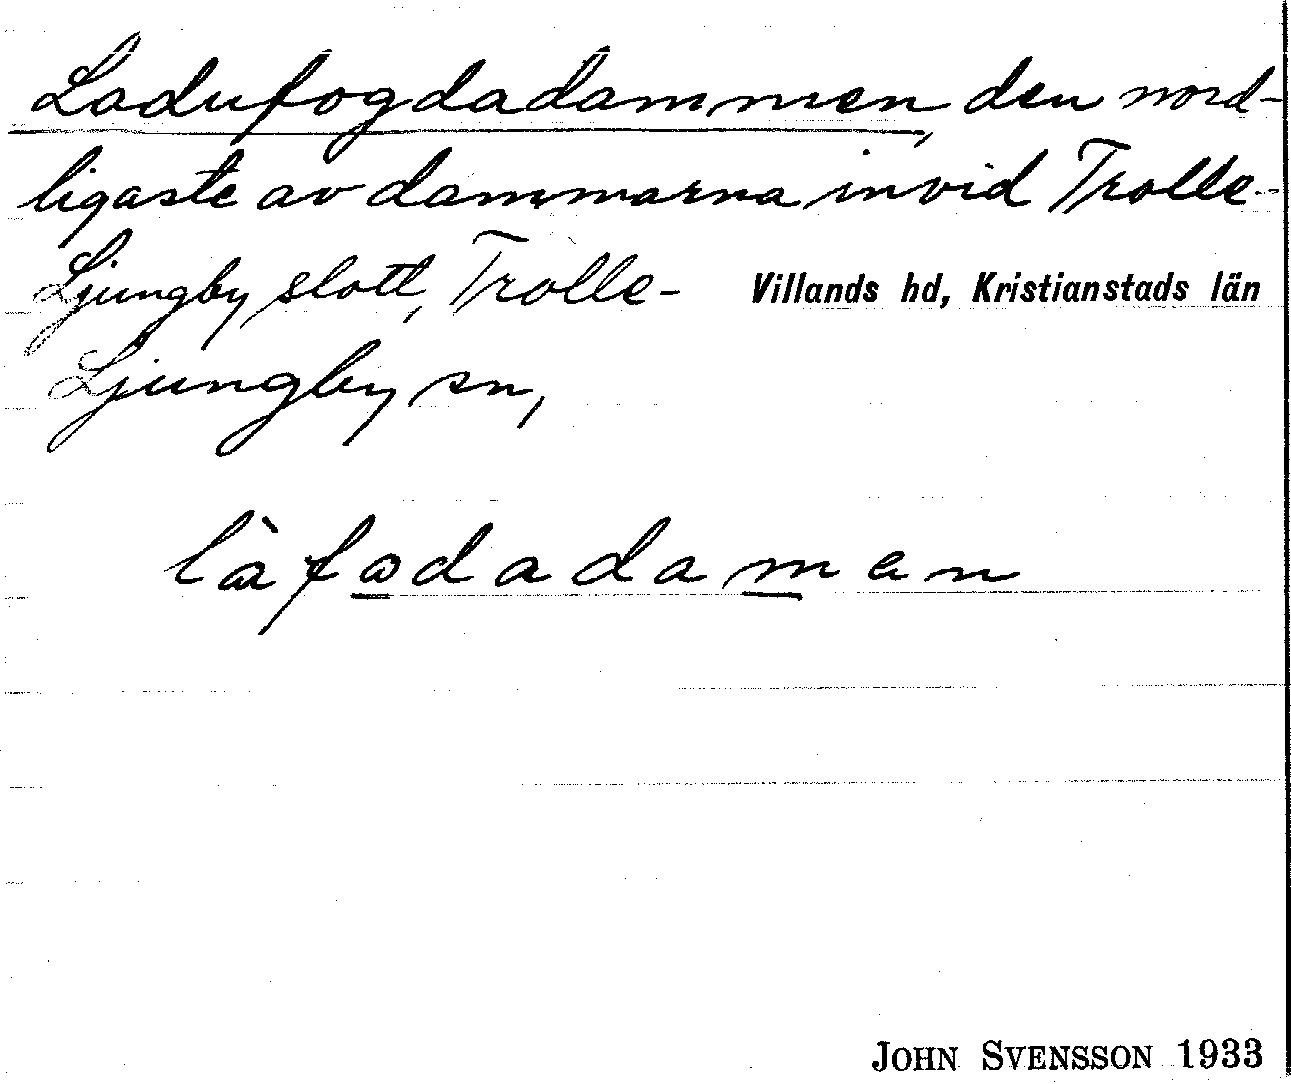 Ladufogdadammen, den nord-
ligaste av dammarna invid Trolle-
Ljungby slott, Trolle- Villands hd, Kristianstads län
Ljungby sn,
JOHN SVENSSON 1933